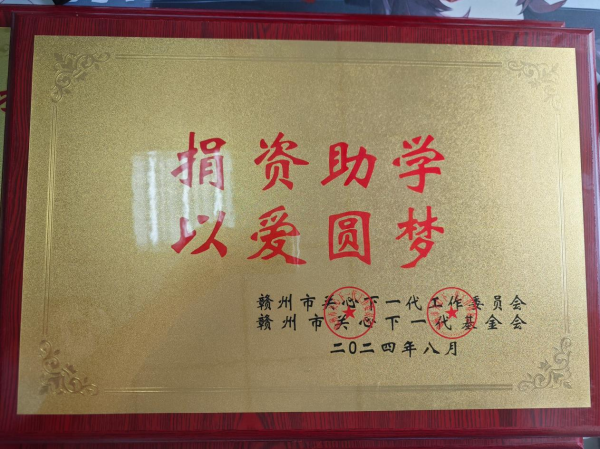 捐资助学
以爱圆梦
赣州市关心下一代工作委员会
赣州市关心下一代基金会
二〇二四年八月